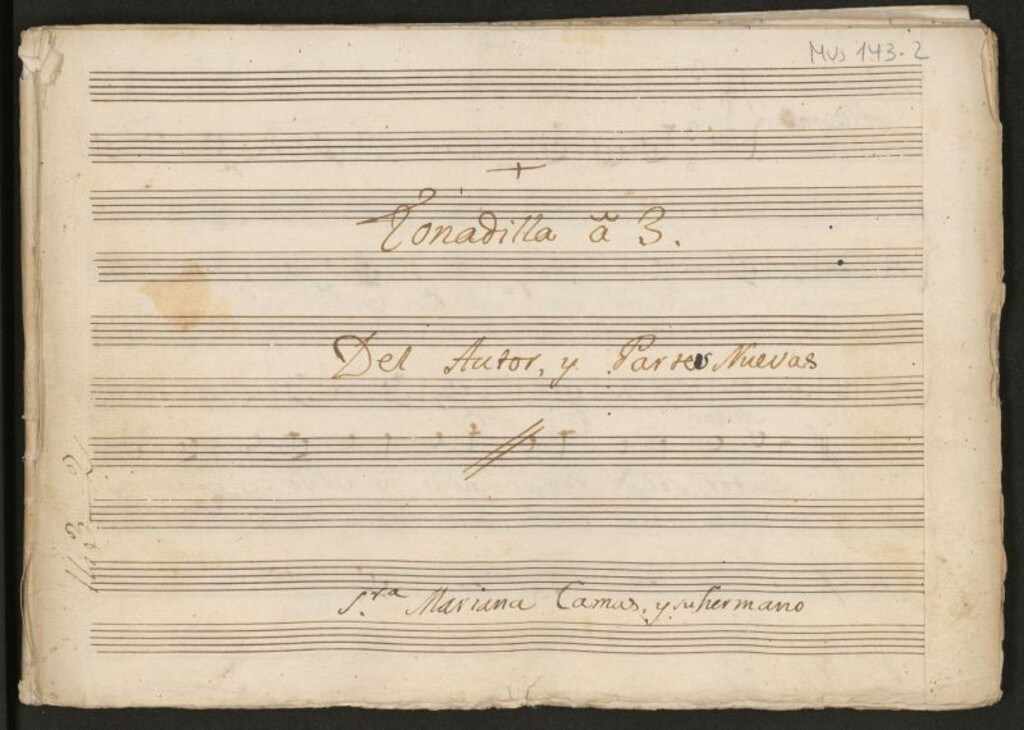 Mus 143-2
+
Tonadilla a 3.
Del Autor, y Partes Nuevas
S.ra Mariana Camas, y su hermano